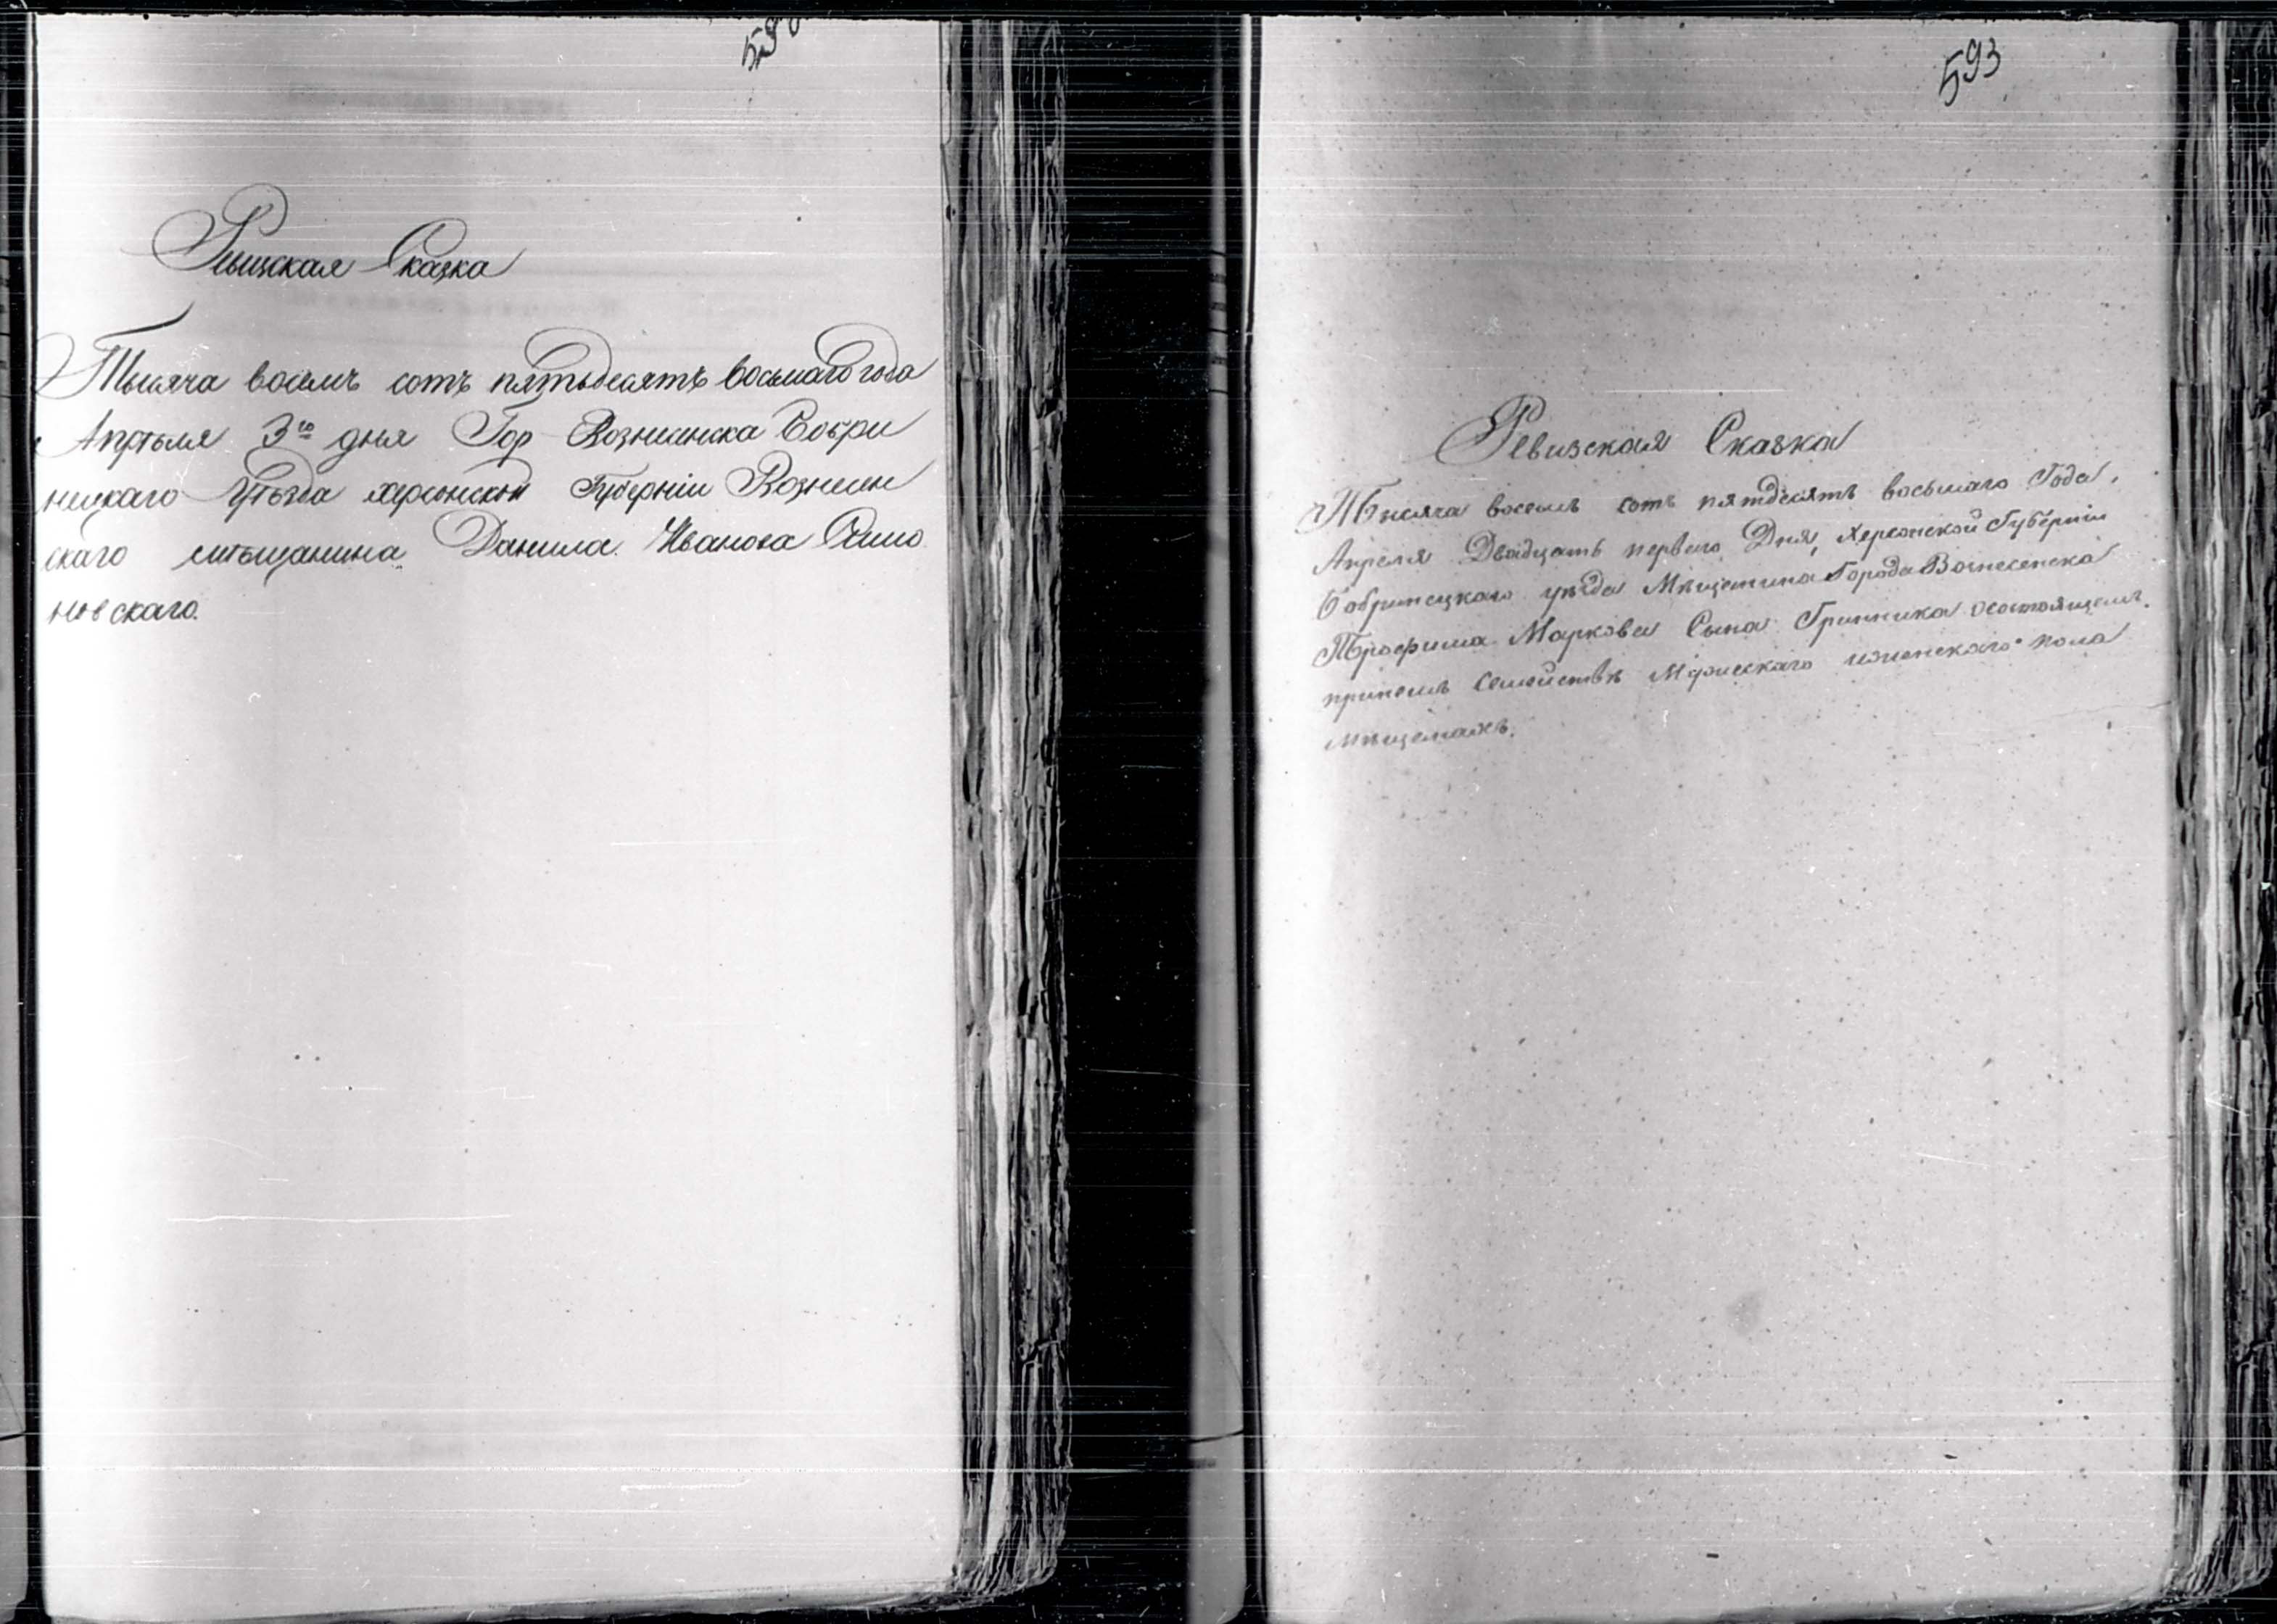 Ревизская Сказка
Тысяча восемь сотъ пятьдесятъ восьмаго года
Апрѣля 3го дня Гор Вознесенска Бобри
нецкаго Уѣзда херсонской Губерніи Вознесен
скаго мѣщанина Данила Иванова
новскаго.
593
Ревизская Сказка
Тысяча восемь сотъ пятдесятъ восьмаго Года,
Апреля Двадцать первого Дня, Херсонской Губерніи
Бобринецкаго уѣзда Мѣщенина Города Вознесенска
Трофима Маркова Сына Гринника осостоящемъ
принемъ Семействѣ Мужескаго иженскаго пола
мѣщенахъ.